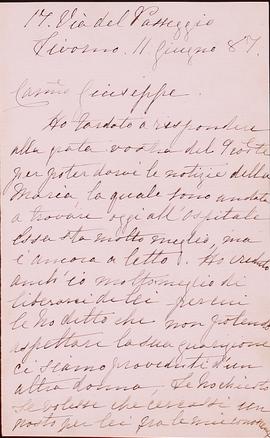 17. Via del Passeggio
Livorno. 11 Giugno 87.
Carmo Giuseppe.
Ho tardato a rispondere
alla grata vostra del 9 corte
per poter darvi le notizie della
Maria, la quale sono andata
a trovare oggi all'Ospitale
Essa sta molto meglio, ma
è ancora a letto. Ho creduto
anch'io molto meglio di
liberarci di lei per cui
le ho detto che non potendo
aspettare la sua guarigione
ci siamo provveduti d'un
altra donna, Le ho chiesto
se volesse che cercassi un
posto per lei fra le mie